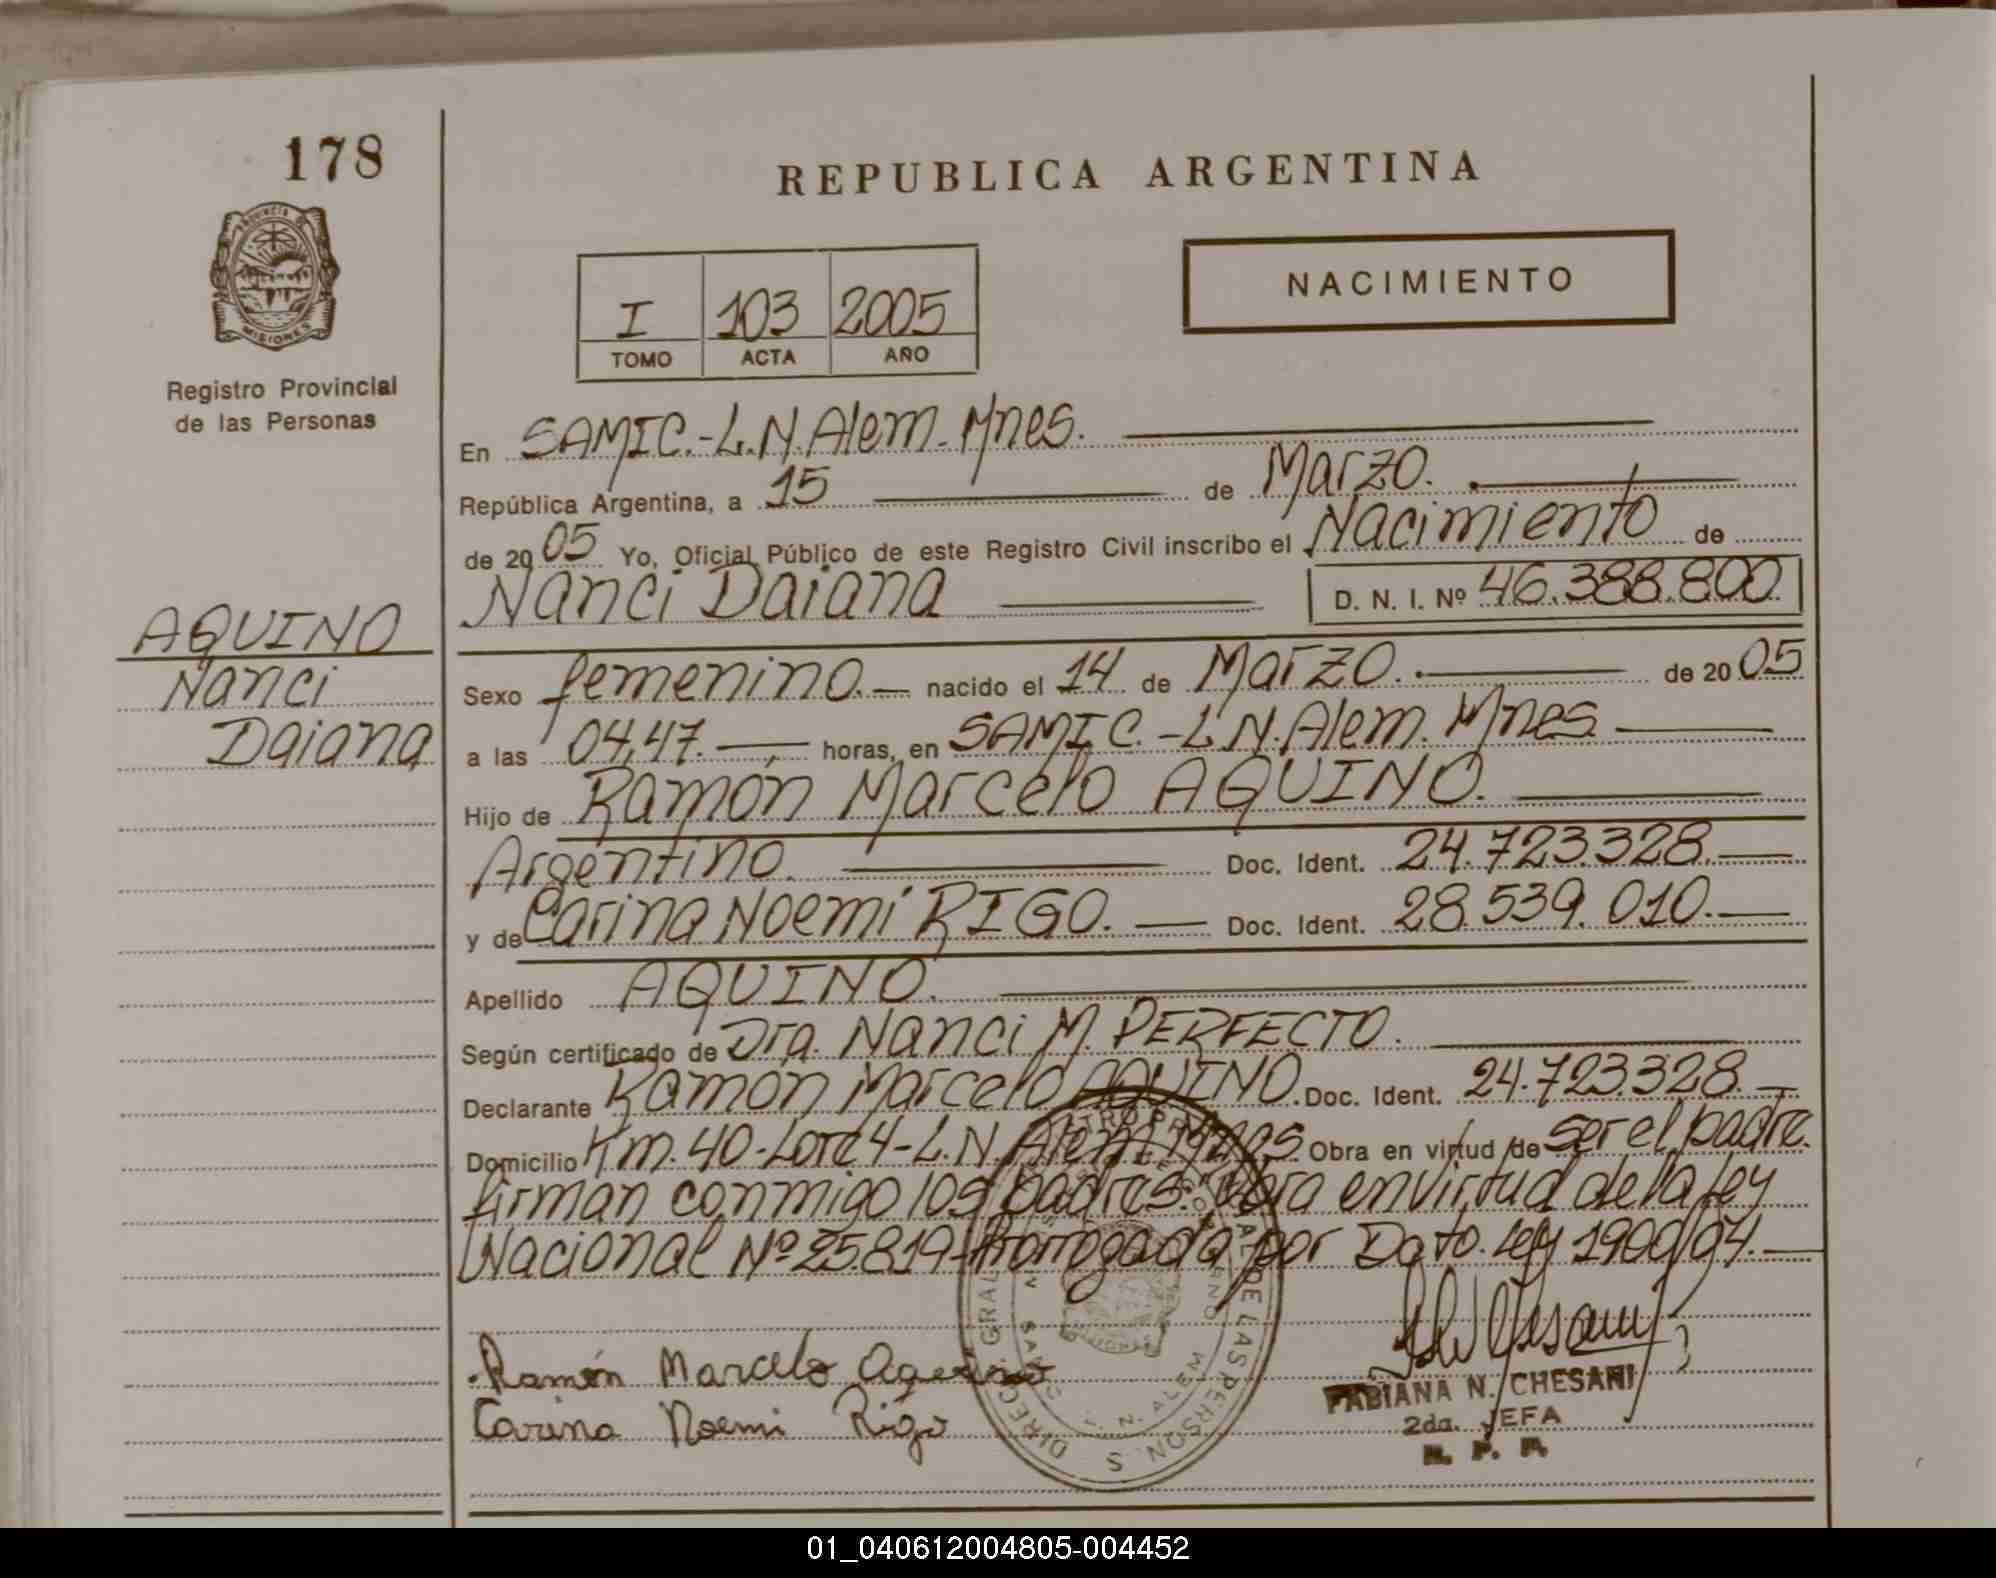 178
REPUBLICA ARGENTINA
PROVINCIA DE
MISIONES
Registro Provincial
de las Personas
NACIMIENTO
I 103 2005
TOMO ACTA AÑO
En SAMIC.-L.N.Alem. Mnes.
República Argentina, a 15 de Marzo.
de 2005 Yo, Oficial Público de este Registro Civil inscribo el Nacimiento de
Nanci Daiana D. N. I. Nº 46.388.800.
AQUINO
Nanci
Daiana
Sexo femenino. nacido el 14 de Marzo. de 2005
a las 04,47. horas, en SAMIC.-L.N.Alem. Mnes
Hijo de Ramón Marcelo AQUINO.
Argentino. Doc. Ident. 24.723.328.
y de Carina Noemi RIGO. Doc. Ident. 28.539.010.
Apellido AQUINO.
Según certificado de Dra. Nanci M. PERFECTO.
Declarante Ramón Marcelo AQUINO. Doc. Ident. 24.723.328.
Domicilio Km.40-Lote 4-L.N.Alem. Mnes. Obra en virtud de ser el padre.
firman conmigo los padres. Obra en virtud de la ley
Nacional Nº 25.819-Prorrogada por Dcto. Ley 1900/04.
Ramón Marcelo Aquino
Carina Noemi Rigo
FABIANA N. CHESANI
2da. JEFA
R. P. P.
01_040612004805-004452